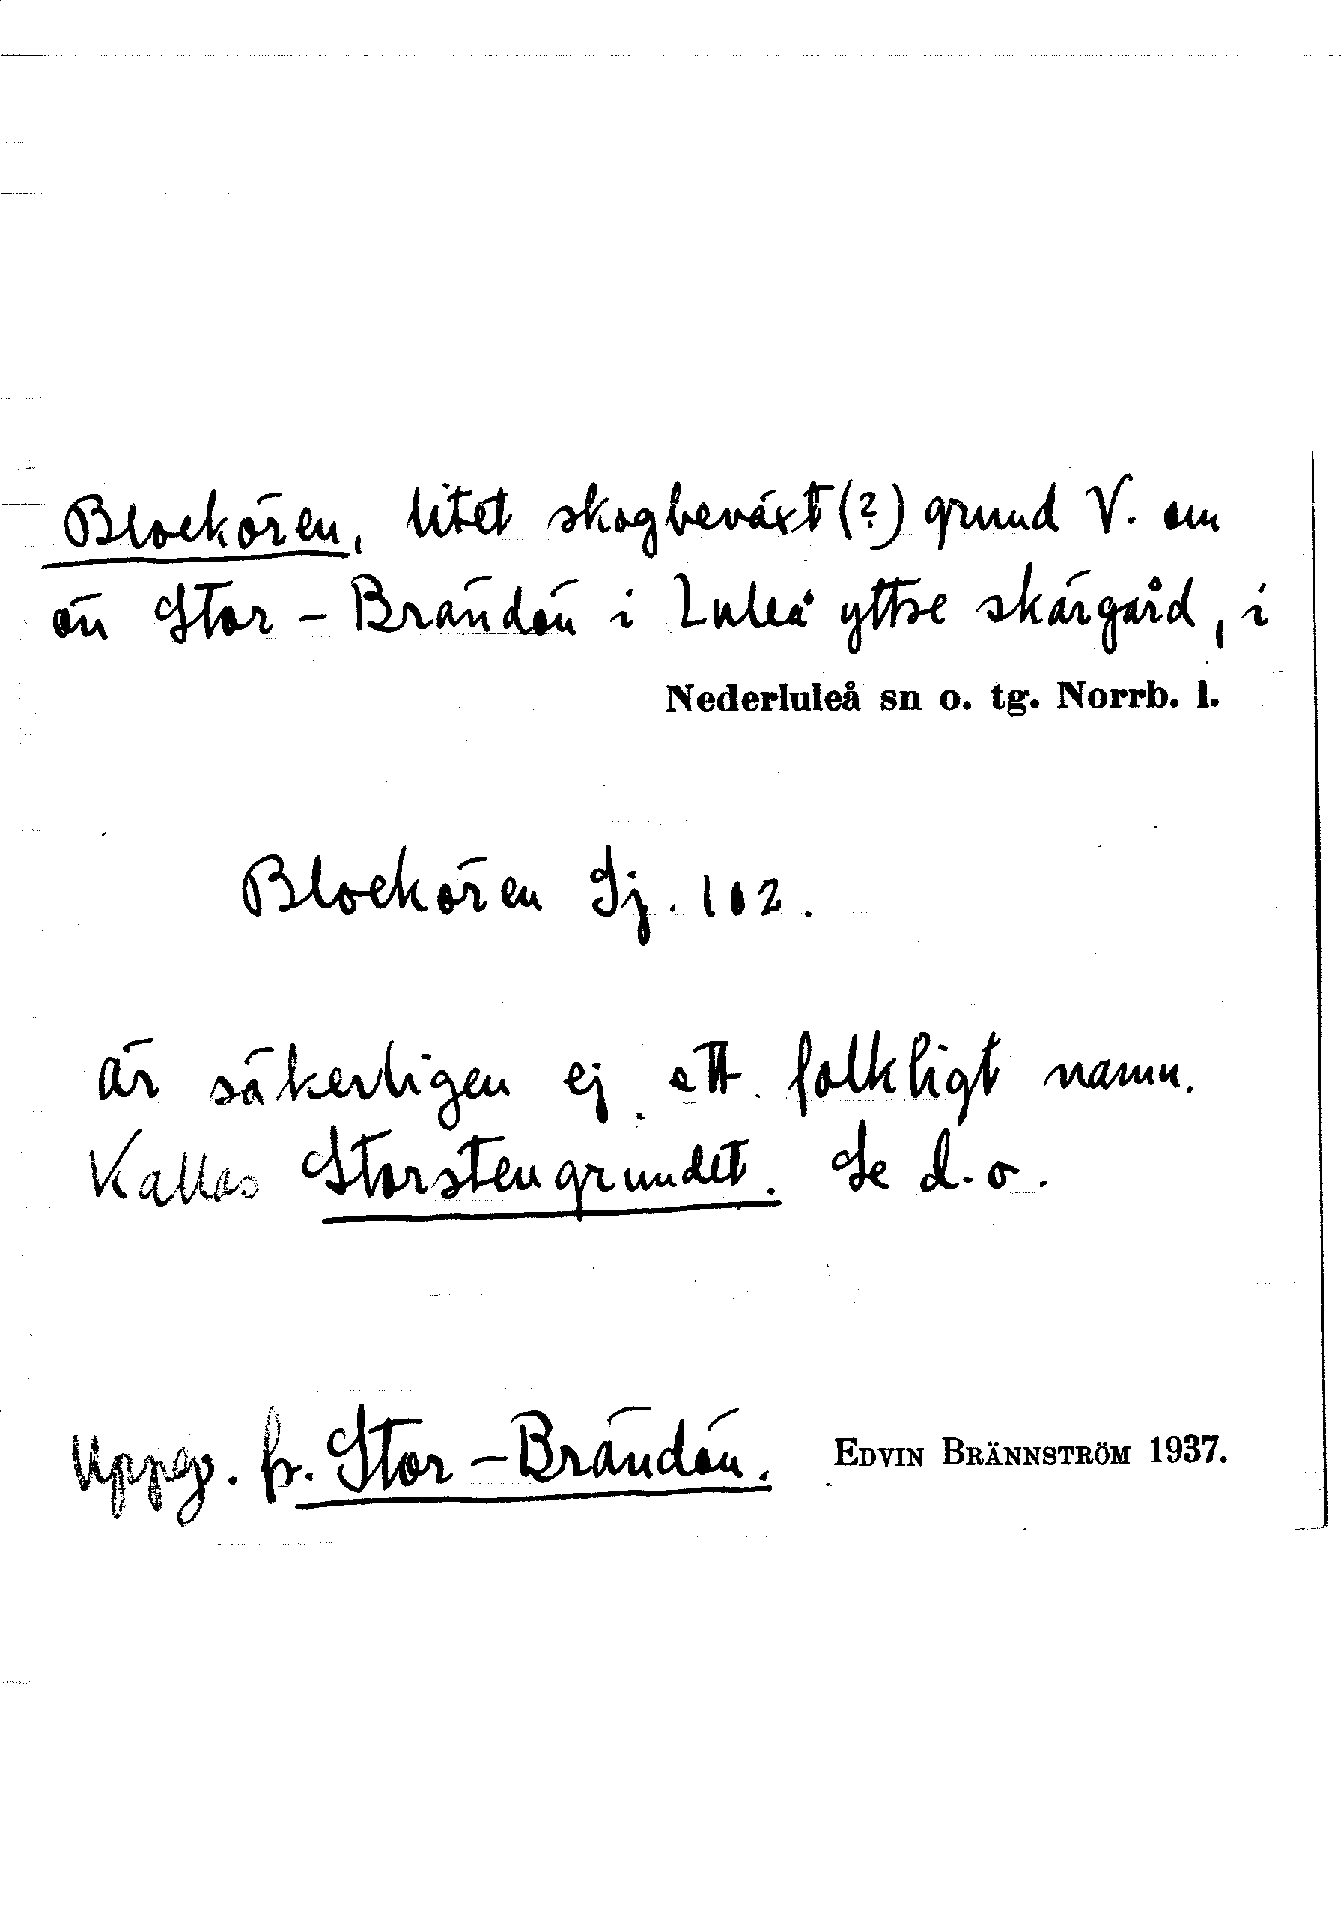 Blockören, litet skogbeväxt (?) grund V. om
ön Stor-Brändön i Luleå yttre skärgård, i
Nederluleå sn o. tg. Norrb. l.
Blockören Sj. 102.
är säkerligen ej ett folkligt namn.
Kallas Storstengrundet. Se d.o.
Uppg. fr. Stor-Brändön. EDVIN BRÄNNSTRÖM 1937.